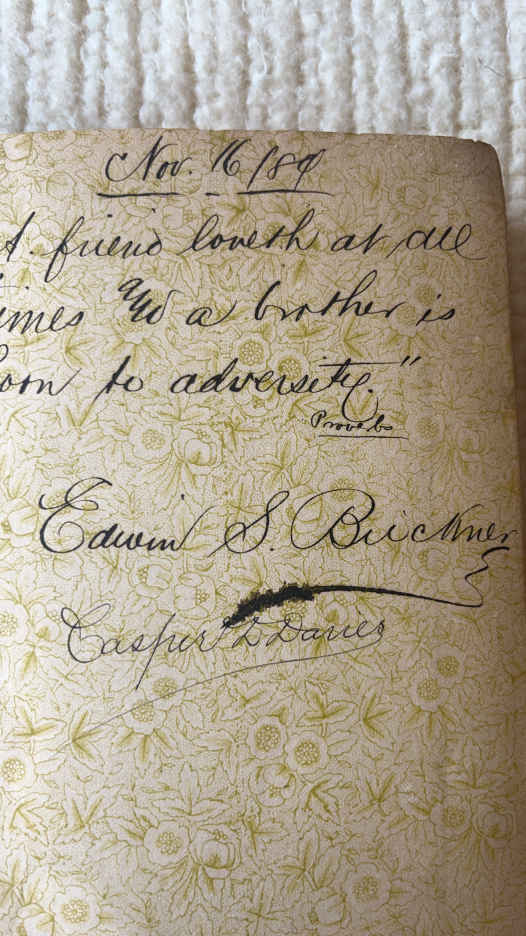 Nov. 16 / 89
A friend loveth at all
times and a brother is
born to adversity."
Proverbs
Edwin S. Buckner
Casper D Davies